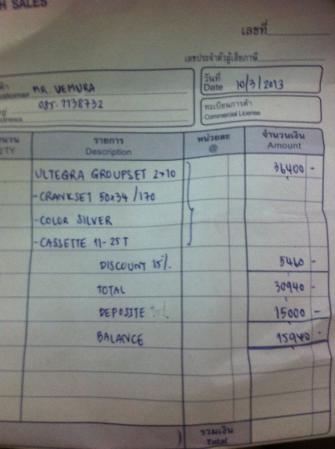 H SALES
เลขที่
เลขประจำตัวผู้เสียภาษี
ustomer MR. UEMURA
085-7138732
ddress
วันที่
Date 10/3/2013
ทะเบียนการค้า
Commercial License
TY
รายการ
Description
หน่วยละ
@
จำนวนเงิน
Amount
ULTEGRA GROUPSET 2x10 36400 -
-CRANKSET 50x34 /170
-COLOR SILVER
-CASSETTE 11-25T
DISCOUNT 15% 5460 -
TOTAL 30940 -
DEPOSITE 15000 -
BALANCE 15940 -
รวมเงิน
Total